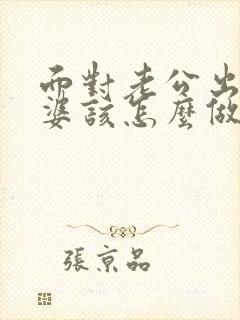 面對老公出
婆該怎麼做
張京品